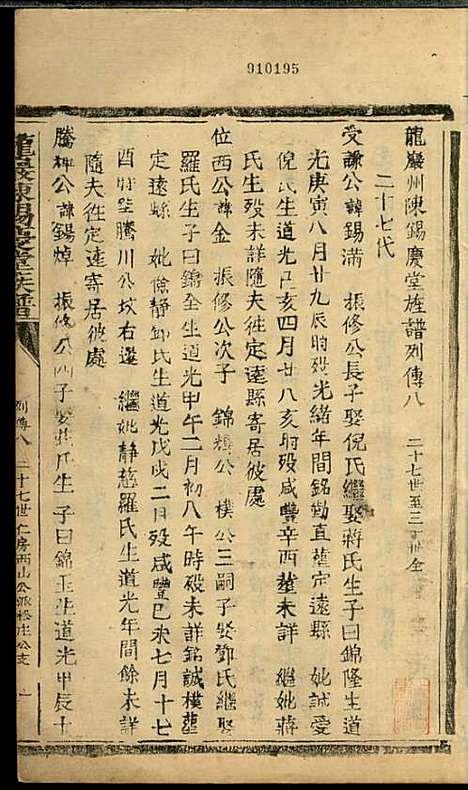 910195
龍巖州陳錫慶堂族譜列傳八 二十七世至三十世仝
二十七代
受謙公諱錫滿 振修公長子娶倪氏繼娶蔣氏生子曰錦隆生道
光庚寅八月廿九辰時歿光緒年間銘勤直塟定遠縣 妣誠愛
倪氏生道光己亥四月廿八亥時歿咸豐辛酉塟未詳 繼妣蔣
氏生歿未詳隨夫徃定遠縣寄居彼處
位西公諱金 振修公次子 錦 公 樸公三嗣子娶鄧氏繼娶
羅氏生子曰錦全生道光甲午二月初八午時歿未詳銘誠樸塟
定遠縣 妣儉靜鄧氏生道光戊戌二月歿咸豐己未七月十七
酉時塟騰川公坟右邊 繼妣靜慈羅氏生道光年間餘未詳
隨夫徃定遠寄居彼處
騰 公諱錫焯 振修公四子娶 氏生子曰錦玉生道光甲辰十
龍巖陳錫慶堂族譜
列傳八 二十七世仁房西山公派 庄公支 一